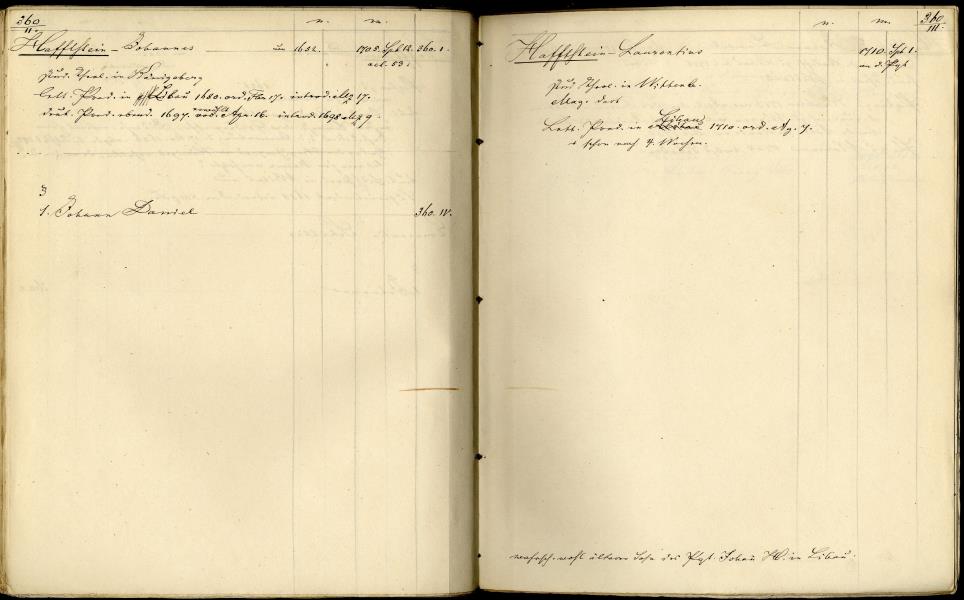 360
II
n. m.
Hafftstein - Johannes um 1652. 1705. Spt 12. 360. I.
aet. 53.
stud. Theol. in Königsberg
lett. Pred. in Libau 1680. ord. Jan 17. introd. Mz 17.
deut. Pred. ebend. 1697. erwählt Apr. 16. introd. 1698 Mz 9.
3
1. Johann Daniel 360. IV.
n. m. 360
III.
Hafftstein - Laurentius 1710. Spt 1.
an d. Pest
stud. Theol. in Wittenb.
Mag. dort
Lett. Pred. in Libau 1710. ord. Ag. 7.
+ schon nach 4 Wochen.
wahrsch. wohl älterer Sohn des Past. Johann H. in Libau.